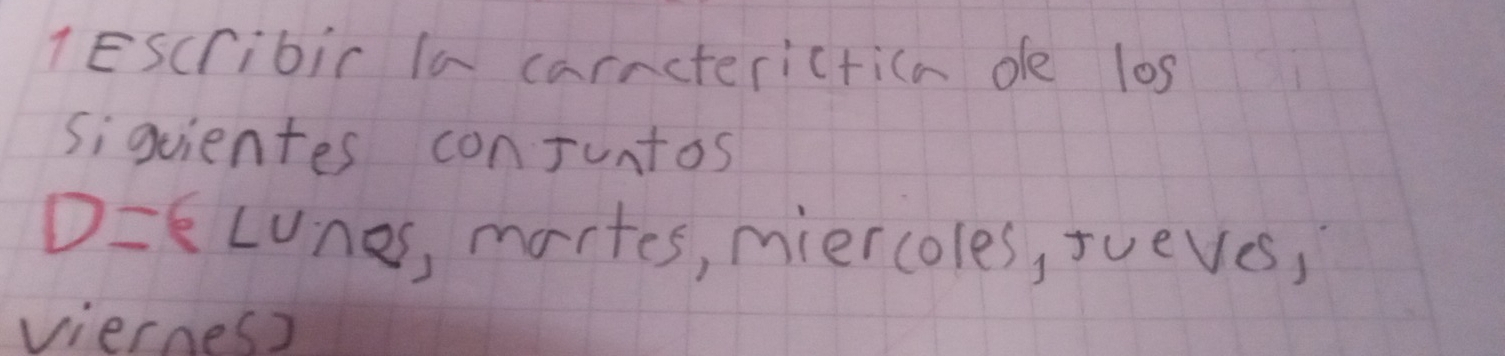 1 Escribir la caracterictica de los
siguientes conjuntos
D={ Lunes, martes, miercoles, jueves,
viernes}